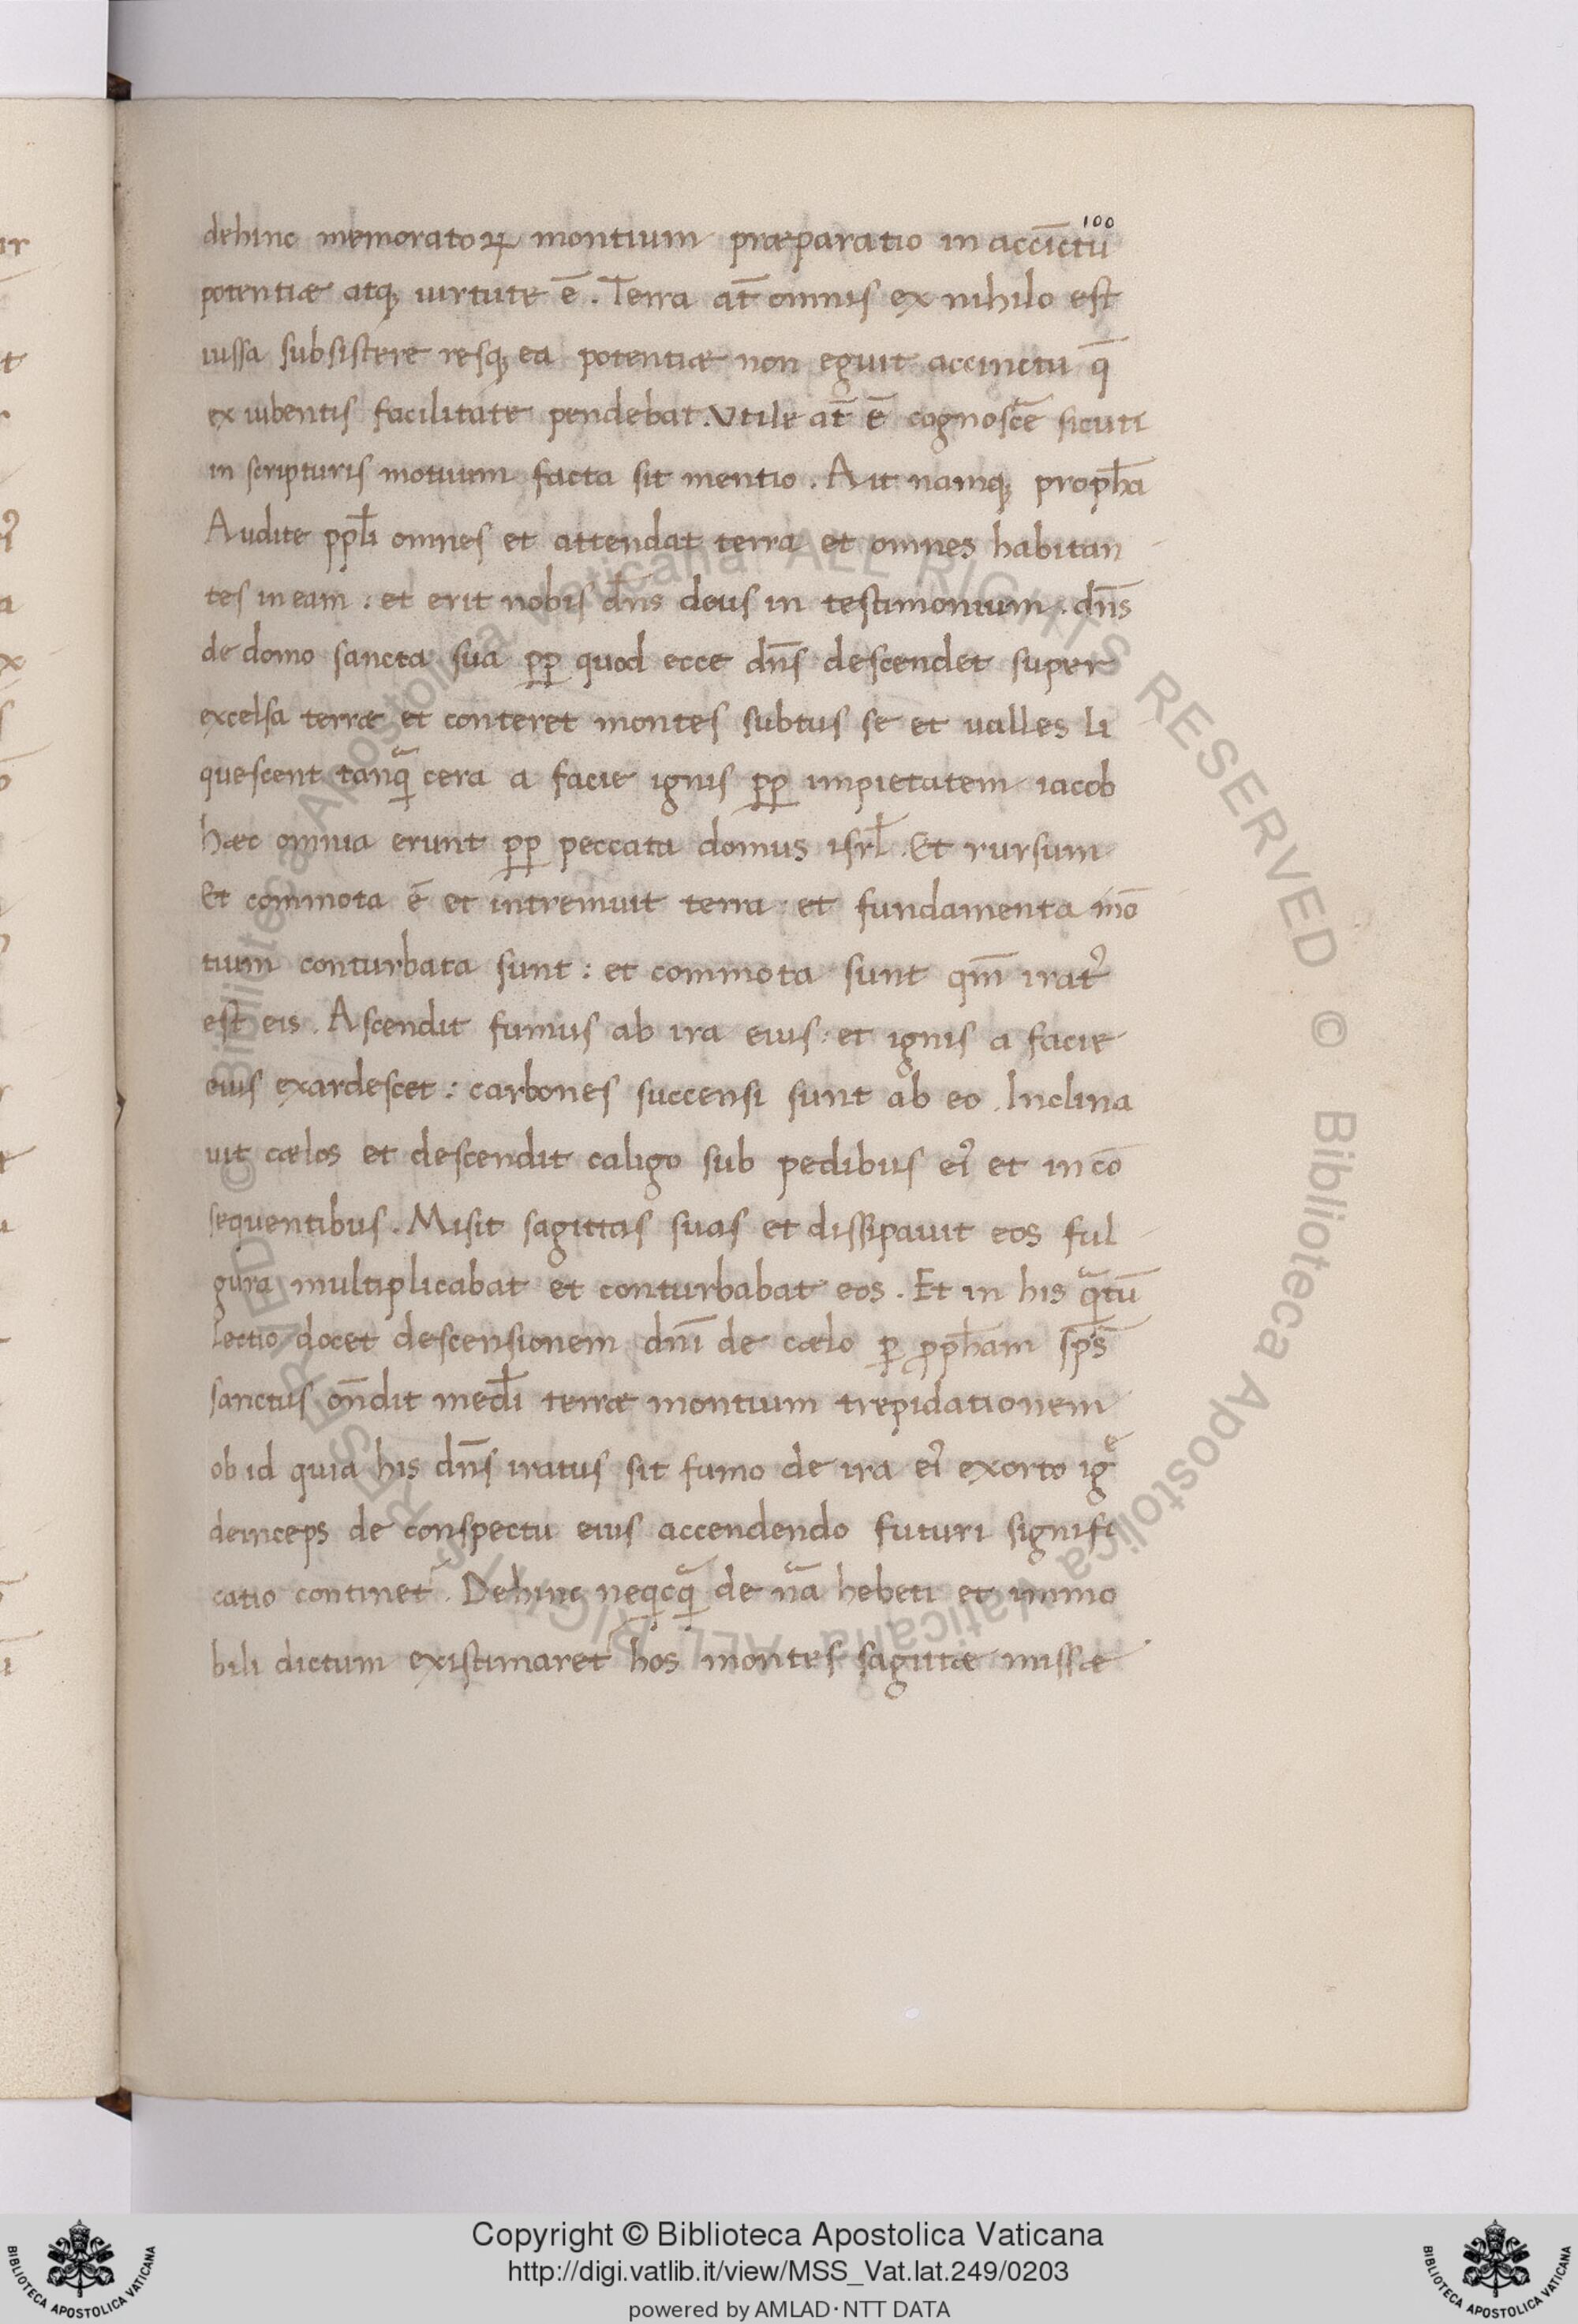 100
dehinc memoratoꝝ montium præparatio in accīctū
potentiæ atq; uirtute ē. Terra at̄ omnis ex nihilo est
iussa subsistere resq; ea potentiæ non eguit accinctu q̄
ex iubentis facilitate pendebat. Vtile at̄ ē cognosce̅ sicuti
in scripturis motuum facta sit mentio. Ait namq; proph̄a
Audite ppl̄i omnes et attendat terra et omnes habitan
tes in eam: et erit nobis dn̄s deus in testimonium. dn̄s
de domo sancta sua ꝓꝑ quod ecce dn̄s descendet super
excelsa terræ et conteret montes subtus se et ualles li
quescent tanq̄ cera a facie ignis ꝓꝑ impietatem iacob
hæc omnia erunt ꝓꝑ peccata domus isrl̄. Et rursum
Et commota ē et intremuit terra: et fundamenta mō
tium conturbata sunt: et commota sunt qm̄ irat᾽
est eis. Ascendit fumus ab ira eius: et ignis a facie
eius exardescet: carbones succensi sunt ab eo. Inclina
uit cælos et descendit caligo sub pedibus ei᾽ et in cō
sequentibus. Misit sagittas suas et dissipauit eos ful
gura multiplicabat et conturbabat eos. Et in his qᵃtū
lectio docet descensionem dn̄i de cælo ꝑ ꝓph̄am sp̄s
sanctus on̄dit med̄i terræ montium trepidationem
ob id quia his dn̄s iratus sit fumo de ira ei᾽ exorto igᵉ
deinceps de conspectu eius accendendo futuri signifi
catio continet᾽. Dehinc neqicqᵃ de nᵃa hebeti et immo
bili dictum existimaret᾽ hos montes sagittæ missæ
Copyright © Biblioteca Apostolica Vaticana
http://digi.vatlib.it/view/MSS_Vat.lat.249/0203
powered by AMLAD·NTT DATA